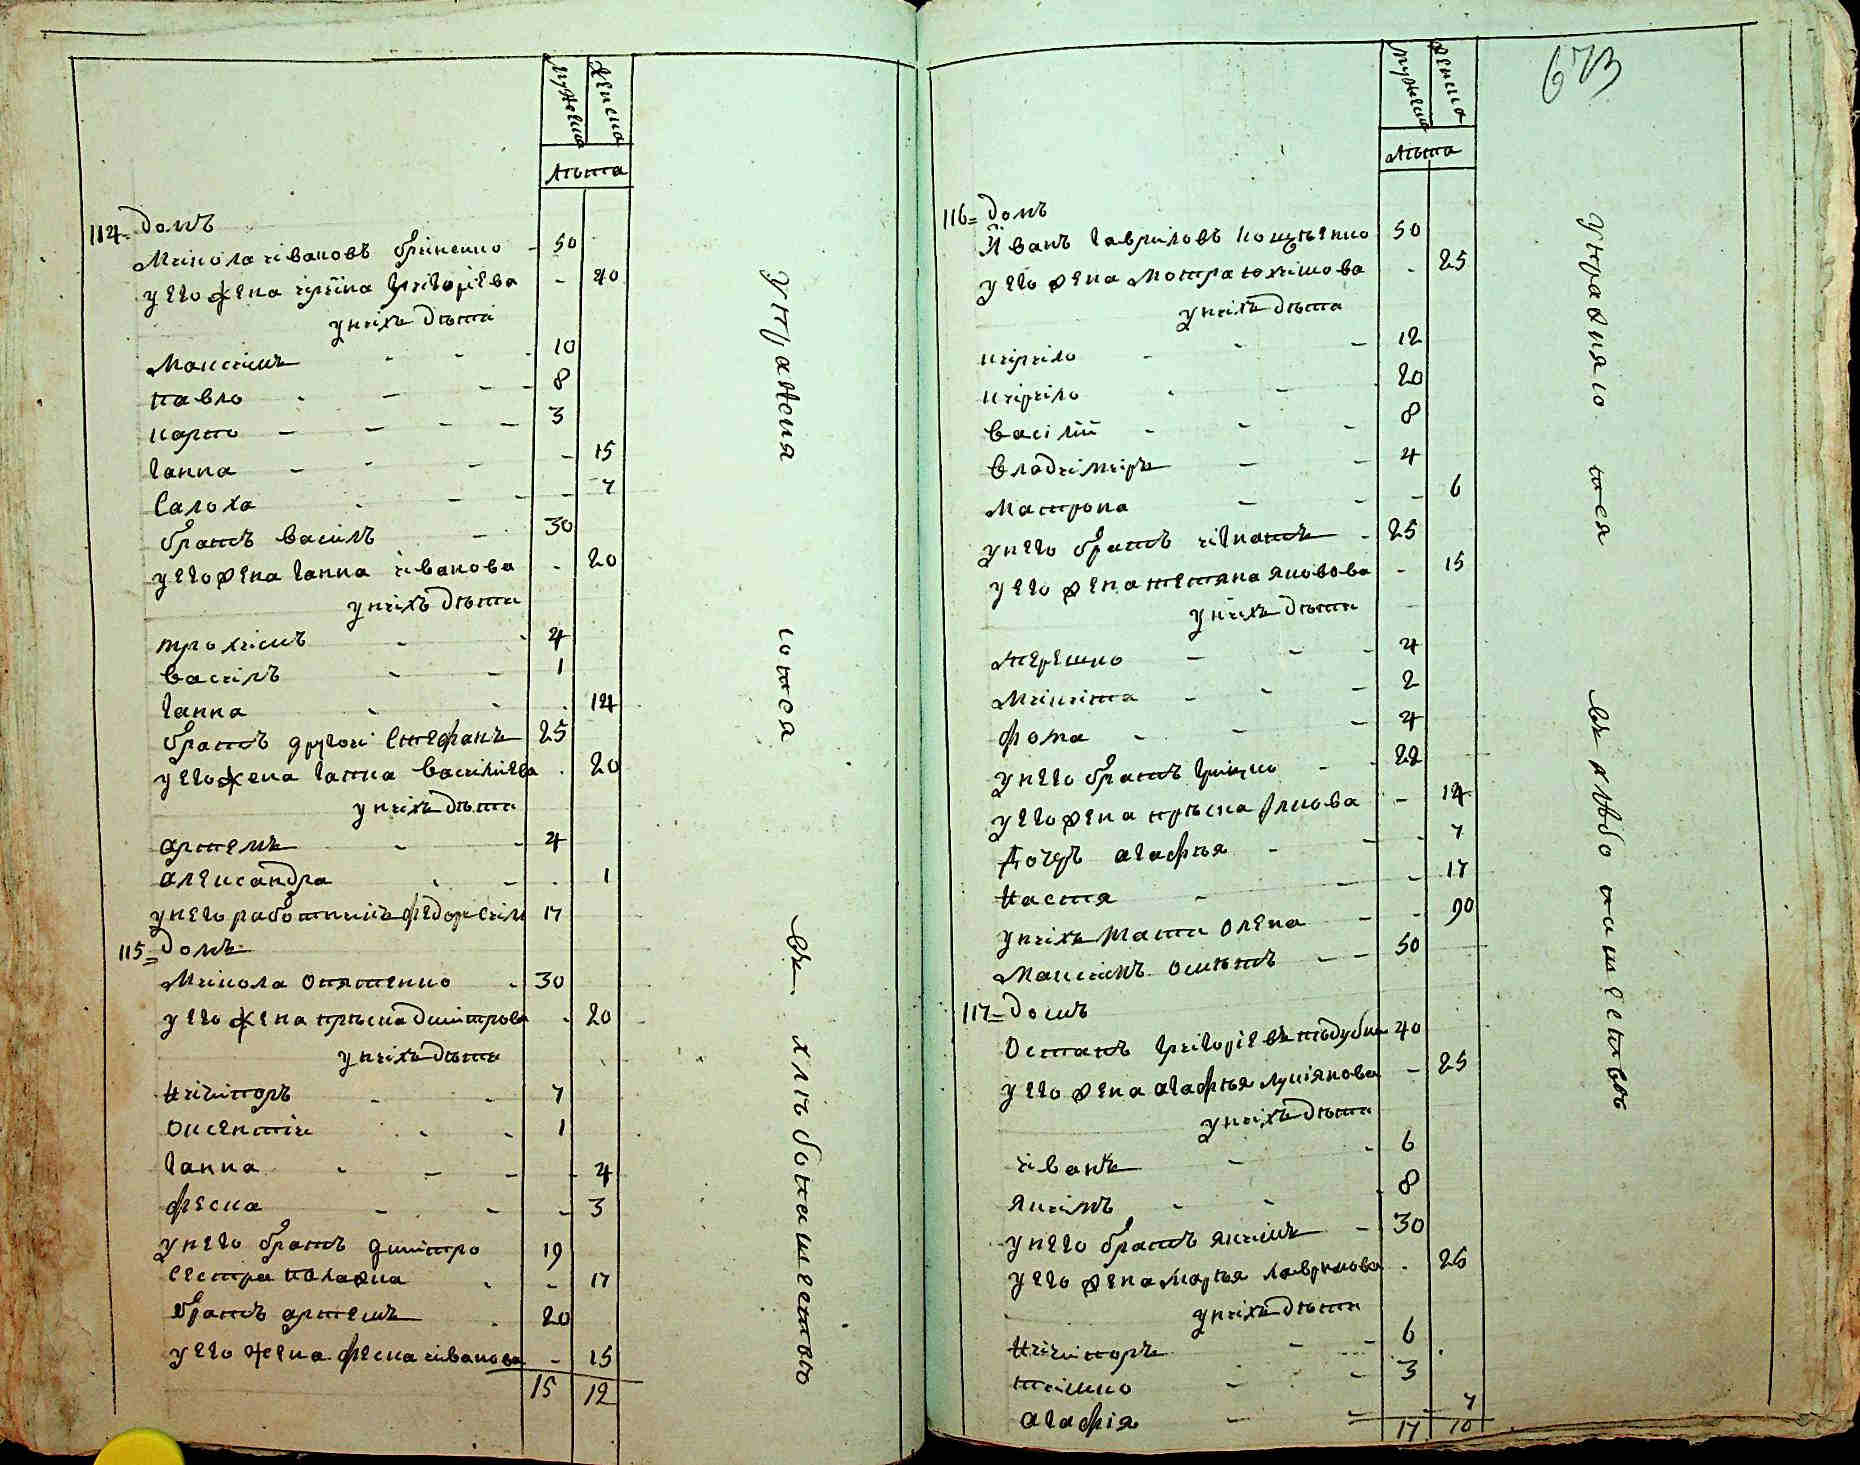 мужеска
женска
лѣта
114 = домъ
Микола ивановъ Гриненко - 50
у его жена ирина григориева - 40
у нихъ дѣти
Максимъ - - - 10
павло - - - 8
карпо - - - - 3
ганна - - - - 15
Салоха - - - 7
братъ василь - 30
у его жена ганна иванова - 20
у нихъ дѣти
трохимъ - - 4
василь - - 1
ганна - - 14
братъ другои Стефанъ 25
у его жена ганна василиева - 20
у нихъ дѣти
артемъ - - 4
александра - - 1
у него работникъ федоръ 17
115 = домъ
Микола - 30
у его жена прѣска димтрова - 20
у нихъ дѣти
Ничипоръ - - 7
оксентии - - 1
ганна - - - 4
феска - - - 3
у него братъ димтро 19
сестра палажка - - 17
братъ артемъ - 20
у его жена феска иванова - 15
15 12
упражняются въ хлѣбопашествѣ
673
мужеска
женска
лѣта
116 = домъ
Иванъ гавриловъ 50
у его жена мотра юхимова - 25
у нихъ дѣти
кирило - - - 12
кирило - - 20
василій - - - 8
владимиръ - - 4
Матрона - - - 6
у него братъ игнатъ - 25
у его жена тетяна яковова - 15
у нихъ дѣти
терешко - - - 4
микита - - - 2
фома - - - 4
у него братъ грицко - - 22
у его жена прѣска - 14
дочерь агафѣя - - - 7
настя - - - 17
у нихъ мати олена - - 90
Максимъ - - 50
117 = домъ
Остапъ григориевъ 40
у его жена агафѣя лукіянова - 25
у нихъ дѣти
иванъ - - 6
якимъ - - 8
у него братъ якимъ - 30
у его жена марѣя - 25
у нихъ дѣти
Ничипоръ - - 6
тимко - - 3
агафія - - 7
17 10
упражняются въ хлѣбопашествѣ